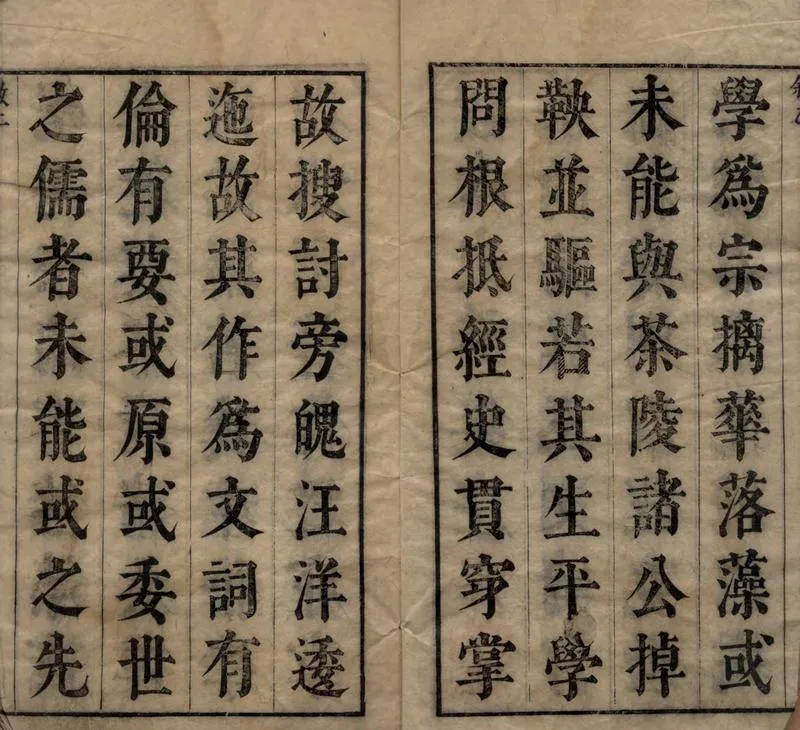 學爲宗摛華落藻或
未能與茶陵諸公掉
鞅並驅若其生平學
問根抵經史貫穿掌
故搜討旁魄汪洋逶
迤故其作爲文詞有
倫有要或原或委世
之儒者未能或之先